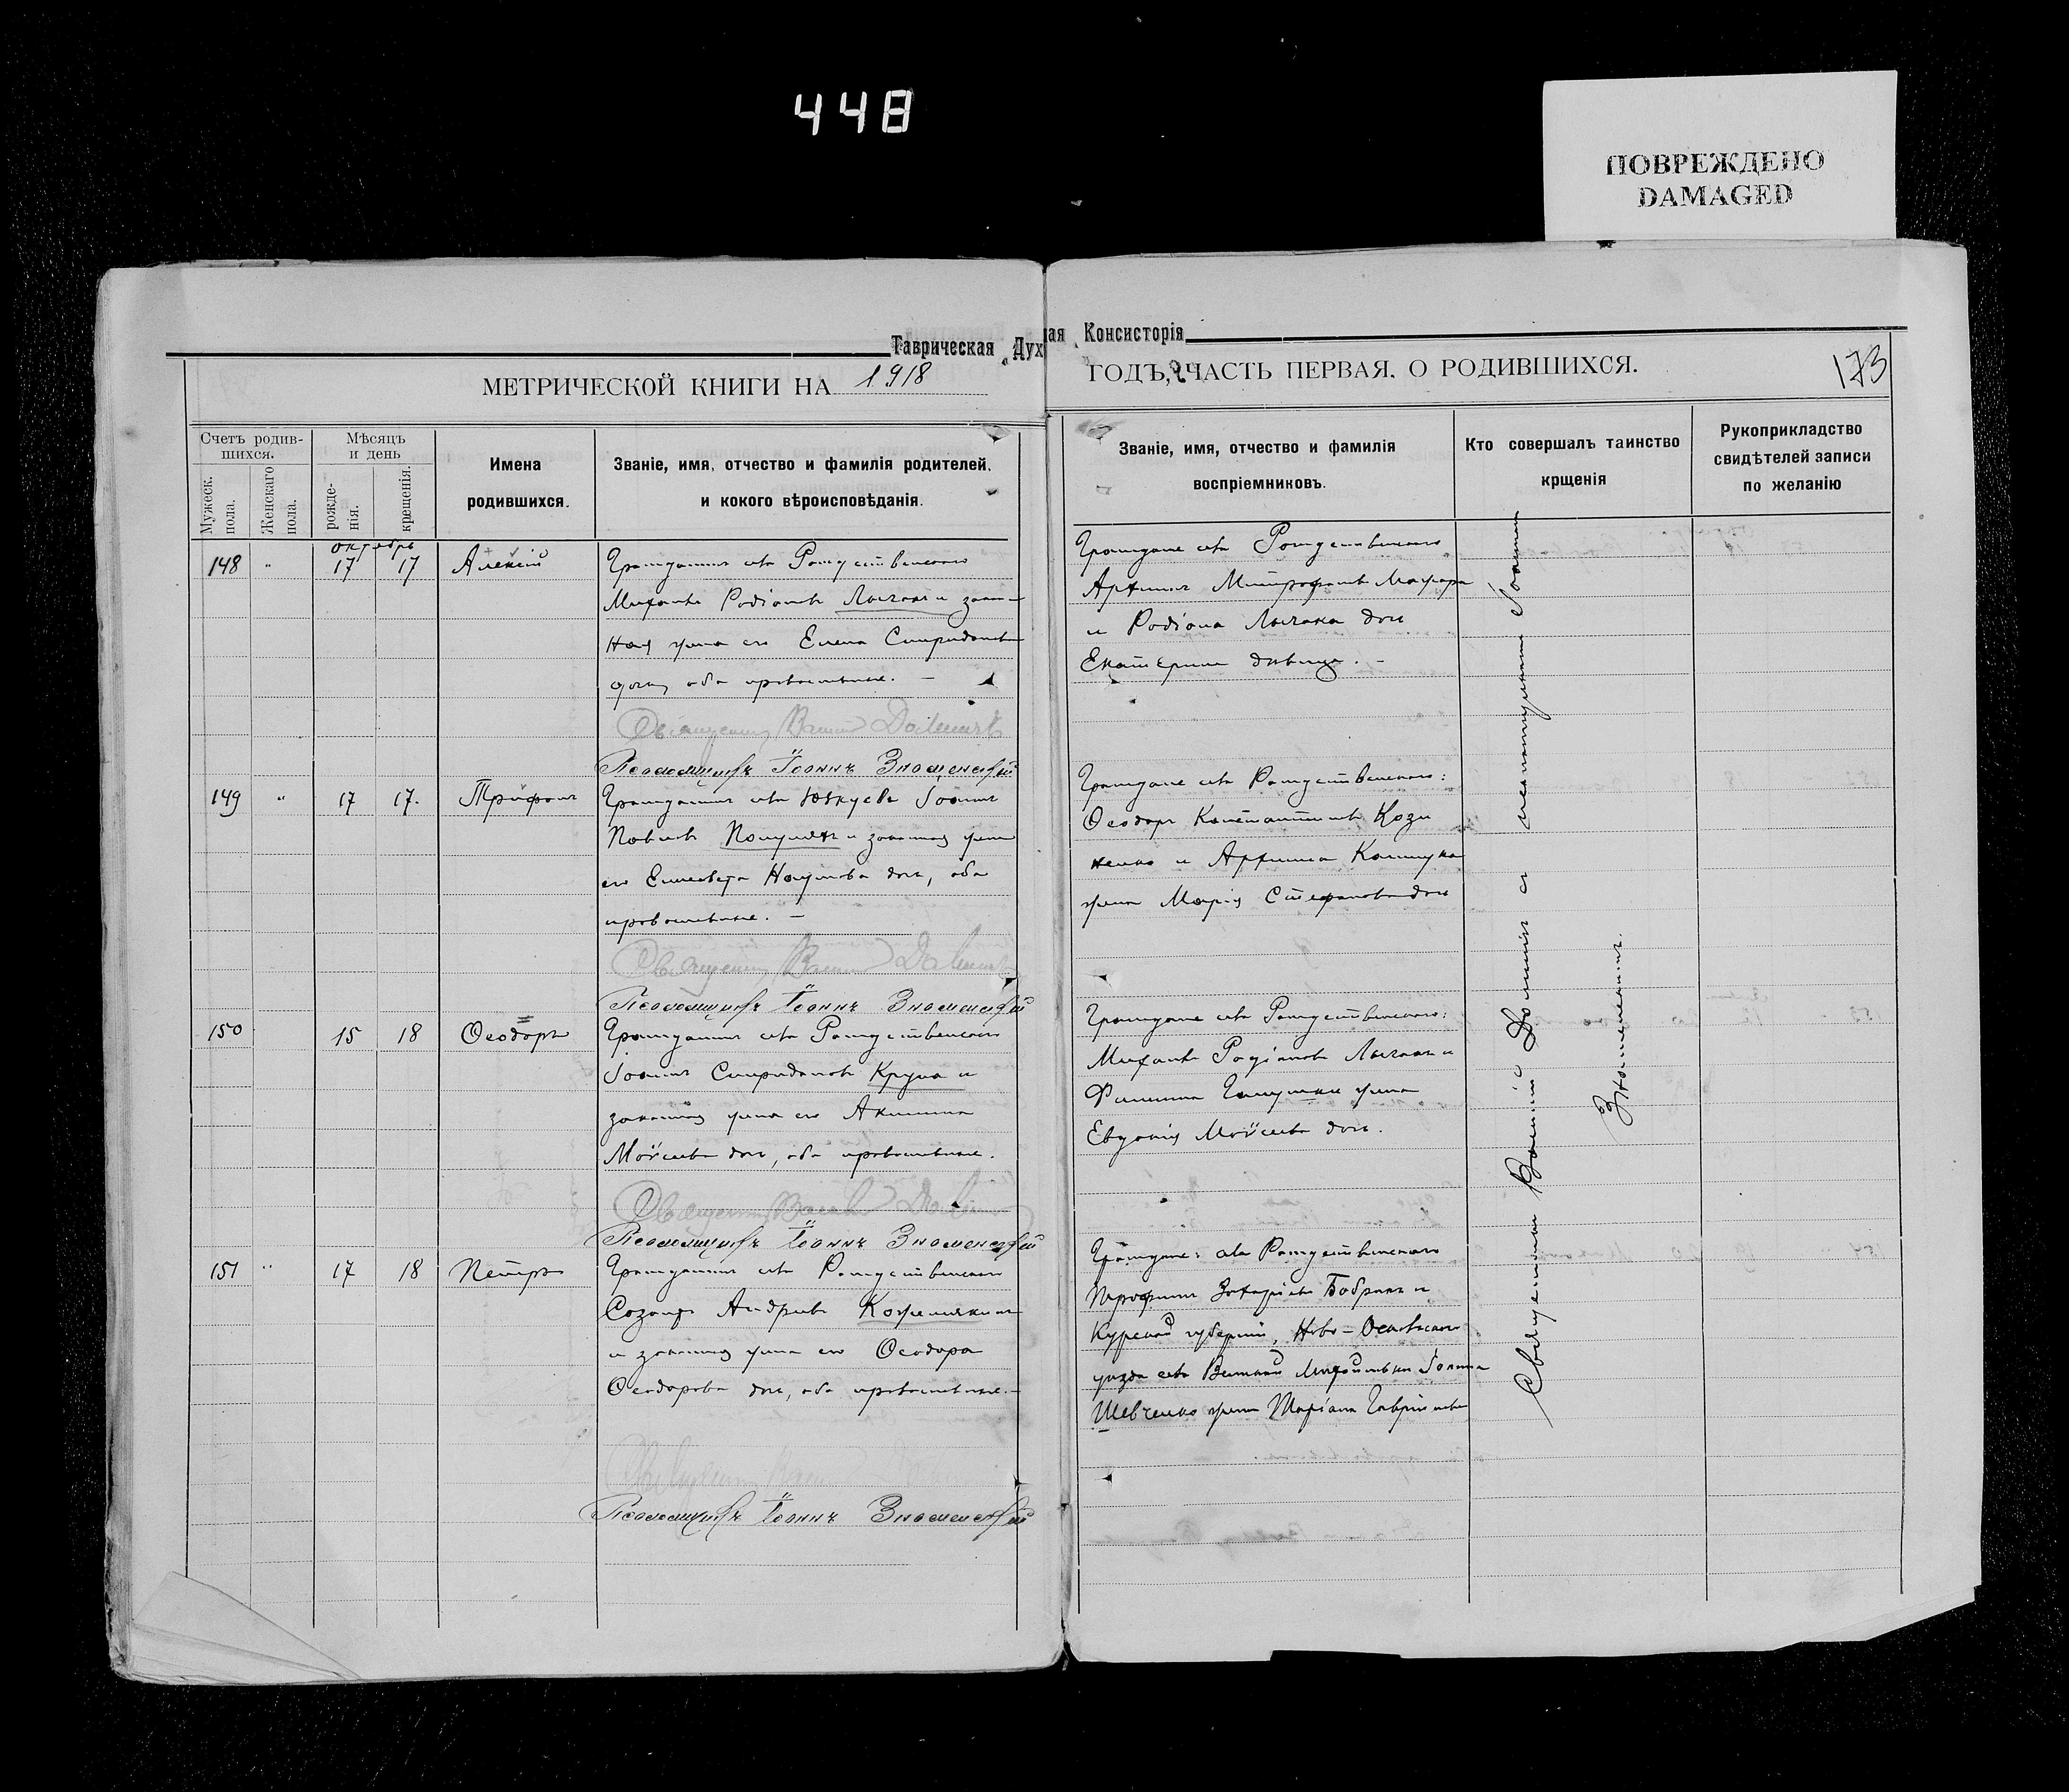 448
ПОВРЕЖДЕНО
DAMAGED
Таврическая Духовная Консисторія
МЕТРИЧЕСКОЙ КНИГИ НА 1918
ГОДЪ, ЧАСТЬ ПЕРВАЯ. О РОДИВШИХСЯ.
173
Счетъ родив-
шихся.
Мужеск.
пола.
Женскаго
пола.
Мѣсяцъ
и день
рожде-
нія.
крещенія.
Имена
родившихся.
Званіе, имя, отчество и фамилія родителей,
и кокого вѣроисповѣданія.
Званіе, имя, отчество и фамилія
воспріемниковъ.
Кто совершалъ таинство
крщенія
Рукоприкладство
свидѣтелей записи
по желанію
октябрь
148 " 17 17 Алексій
Гражданинъ села Рождественскаго
Михаилъ Родіоновъ Лысакъ и закон-
ная жена его Елена Спиридонова
оба православные. —
Священникъ Василій
Псаломщикъ Іоаннъ Знаменскій
Граждане села Рождественскаго
Митрофановъ
и Родіона Лысака дочь
Екатерина дѣвица. –
149 " 17 17. Трифонъ
Гражданинъ села Іоаннъ
Павловъ и законная жена
его Елисавета Наумова дочь, оба
православные. —
Священникъ Василій
Псаломщикъ Іоаннъ Знаменскій
Граждане села Рождественскаго:
Ѳеодоръ Константиновъ Кози
ненко и
жена Марія Стефанова дочь
150 15 18 Ѳеодоръ
Гражданинъ села Рождественскаго
Іоаннъ Спиридоновъ Крупа и
законная жена его Акилина
Моѵсеева дочь, оба православные.
Священникъ Василій
Псаломщикъ Іоаннъ Знаменскій
Граждане села Рождественскаго:
Михаилъ Родіоновъ Лысакъ и
Филиппа жена
Евдокія Моѵсеева дочь.
151 " 17 18 Петръ
Гражданинъ села Рождественскаго
Созонтъ Андреевъ Кожемякинъ
и законная жена его Ѳеодора
Ѳеодорова дочь, оба православные.—
Священникъ
Псаломщикъ Іоаннъ Знаменскій
Граждане: села Рождественскаго
Захаріевъ Бобракъ и
Курской губерніи, Ново-Оскольскаго
уѣзда села Великой Михайловки Іоанна
Шевченко жена Маріана Гавріилова
Священникъ Василій съ псаломщикомъ Іоанномъ
Знаменскимъ.